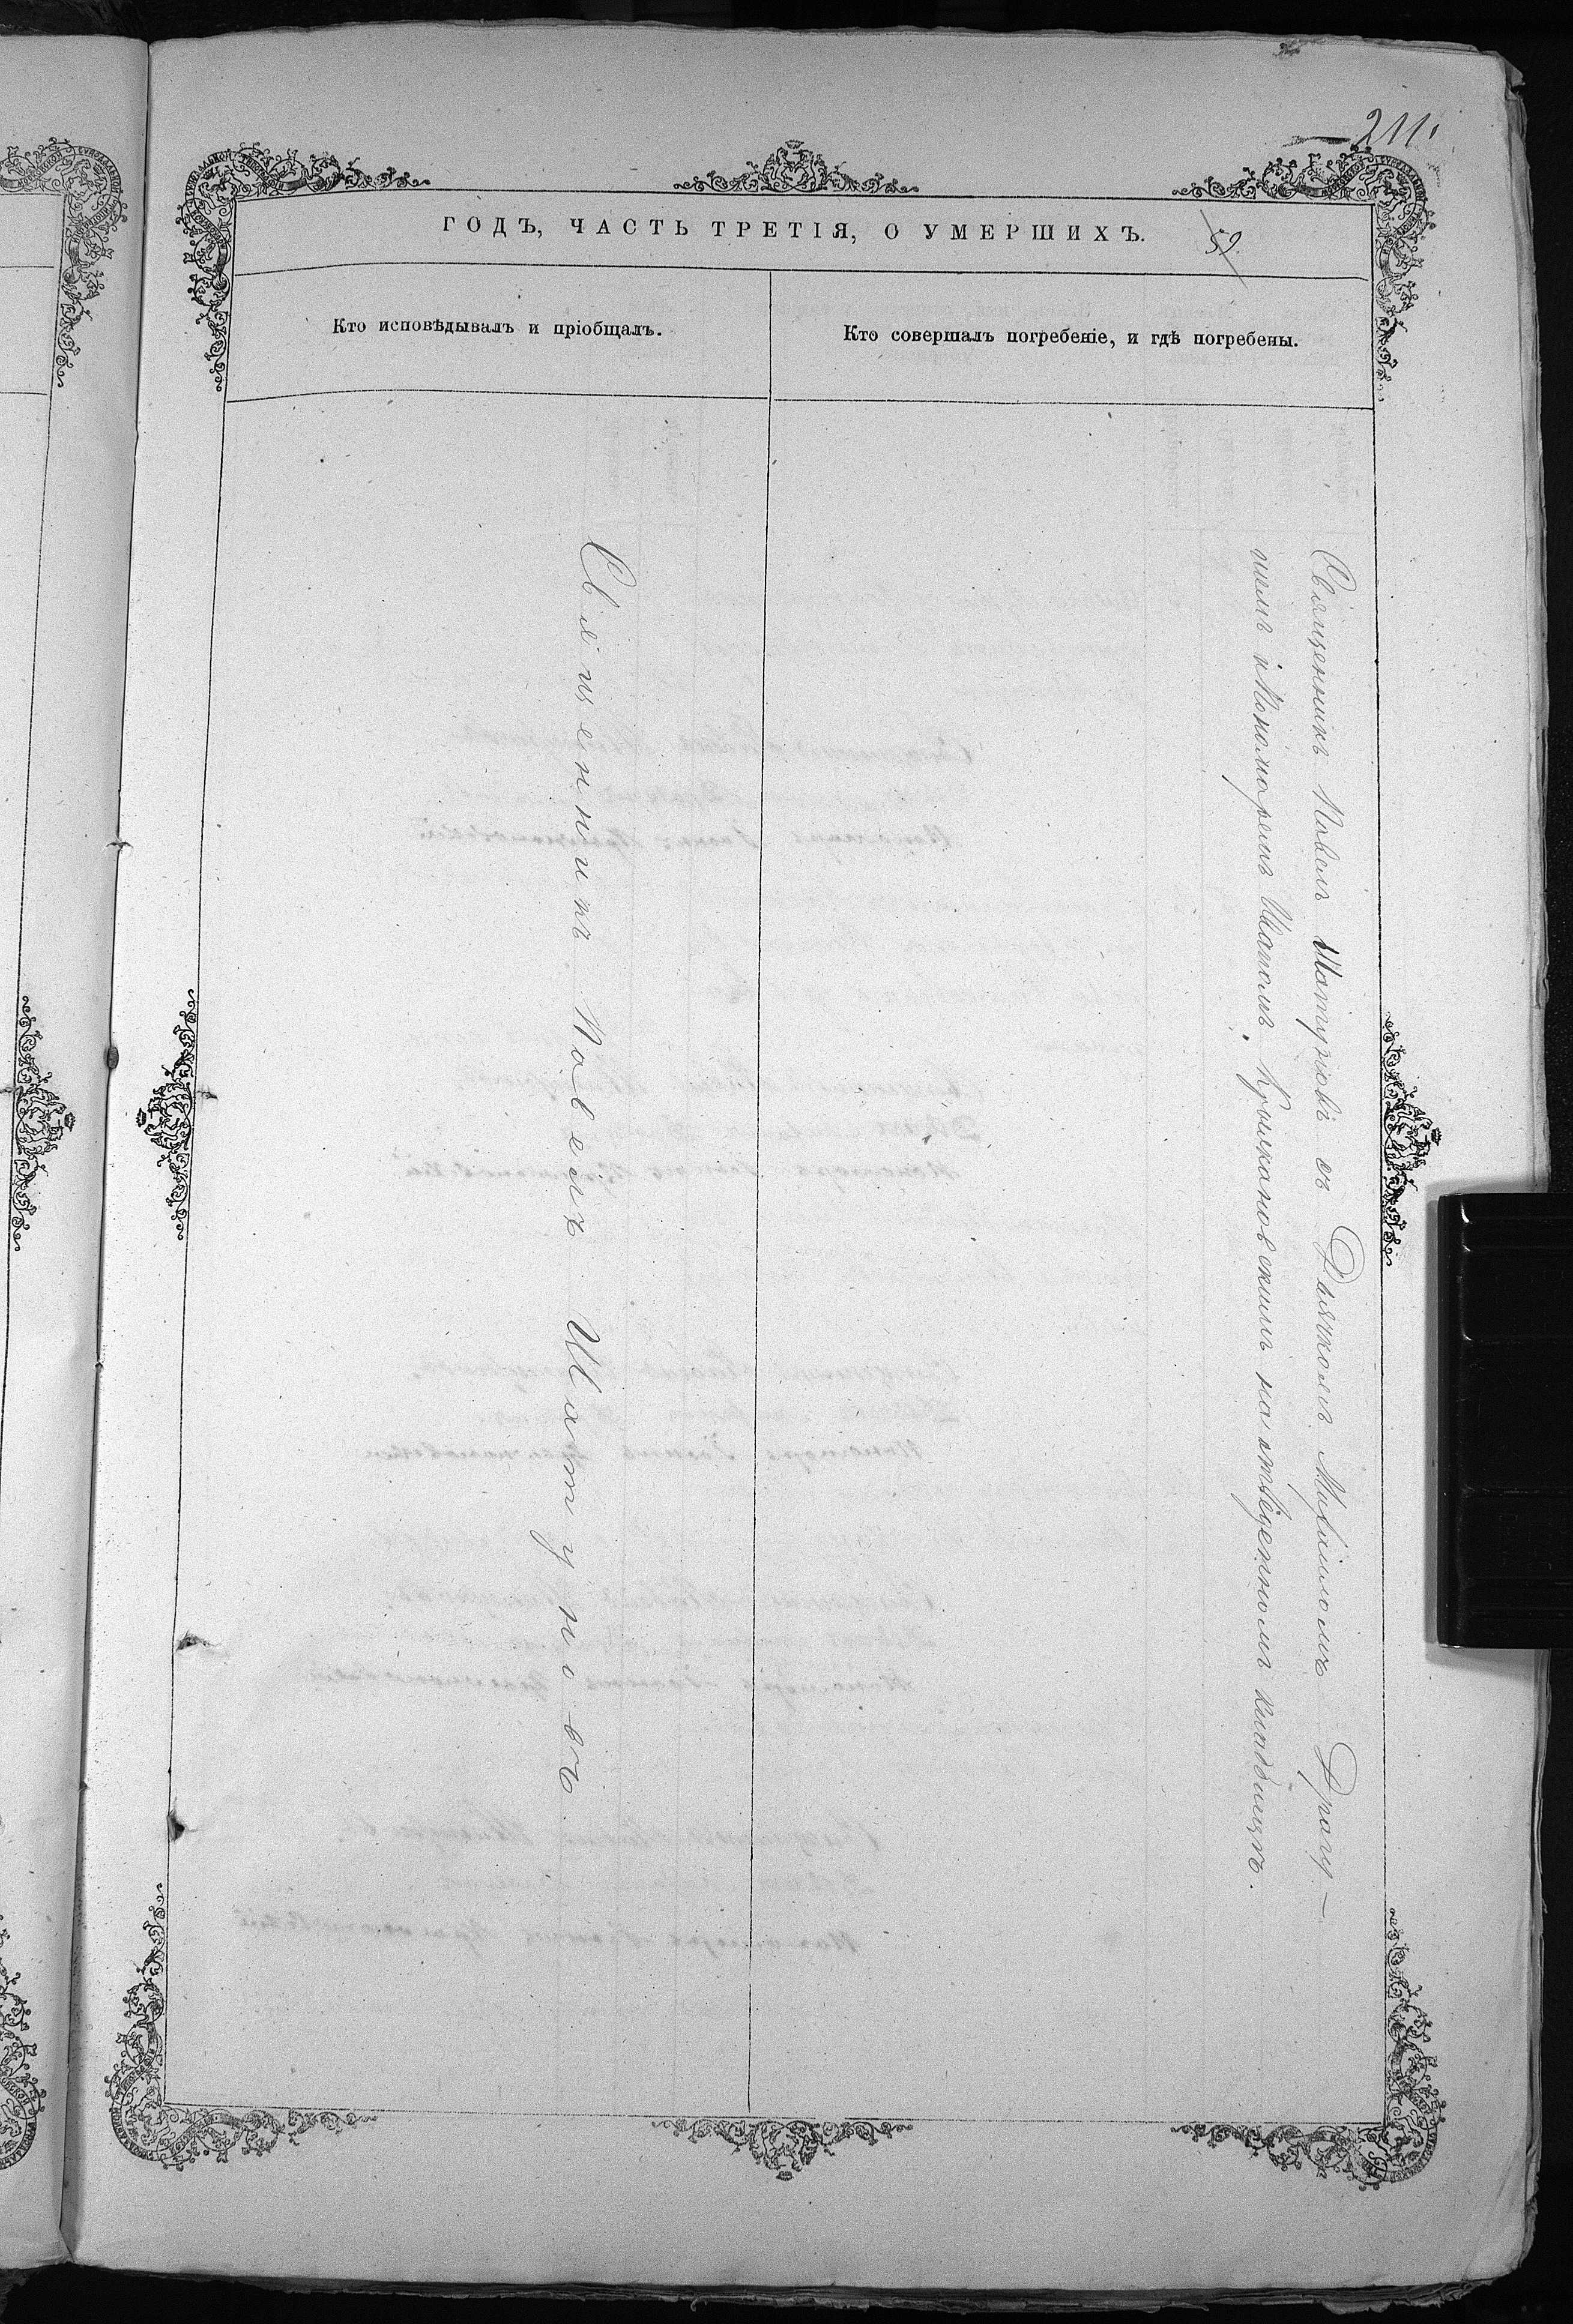 211.
ГОДЪ, ЧАСТЬ ТРЕТІЯ, О УМЕРШИХЪ.
59.
Кто исповѣдывалъ и пріобщалъ.
Кто совершалъ погребеніе, и гдѣ погребены.
Священникъ Павелъ Шатуновъ
Священникъ Павелъ Шатуновъ съ Дьячкомъ Михаиломъ Драгу-
нимъ и Пономаремъ Іваномъ Крижановскимъ на отведенномъ кладбищѣ.